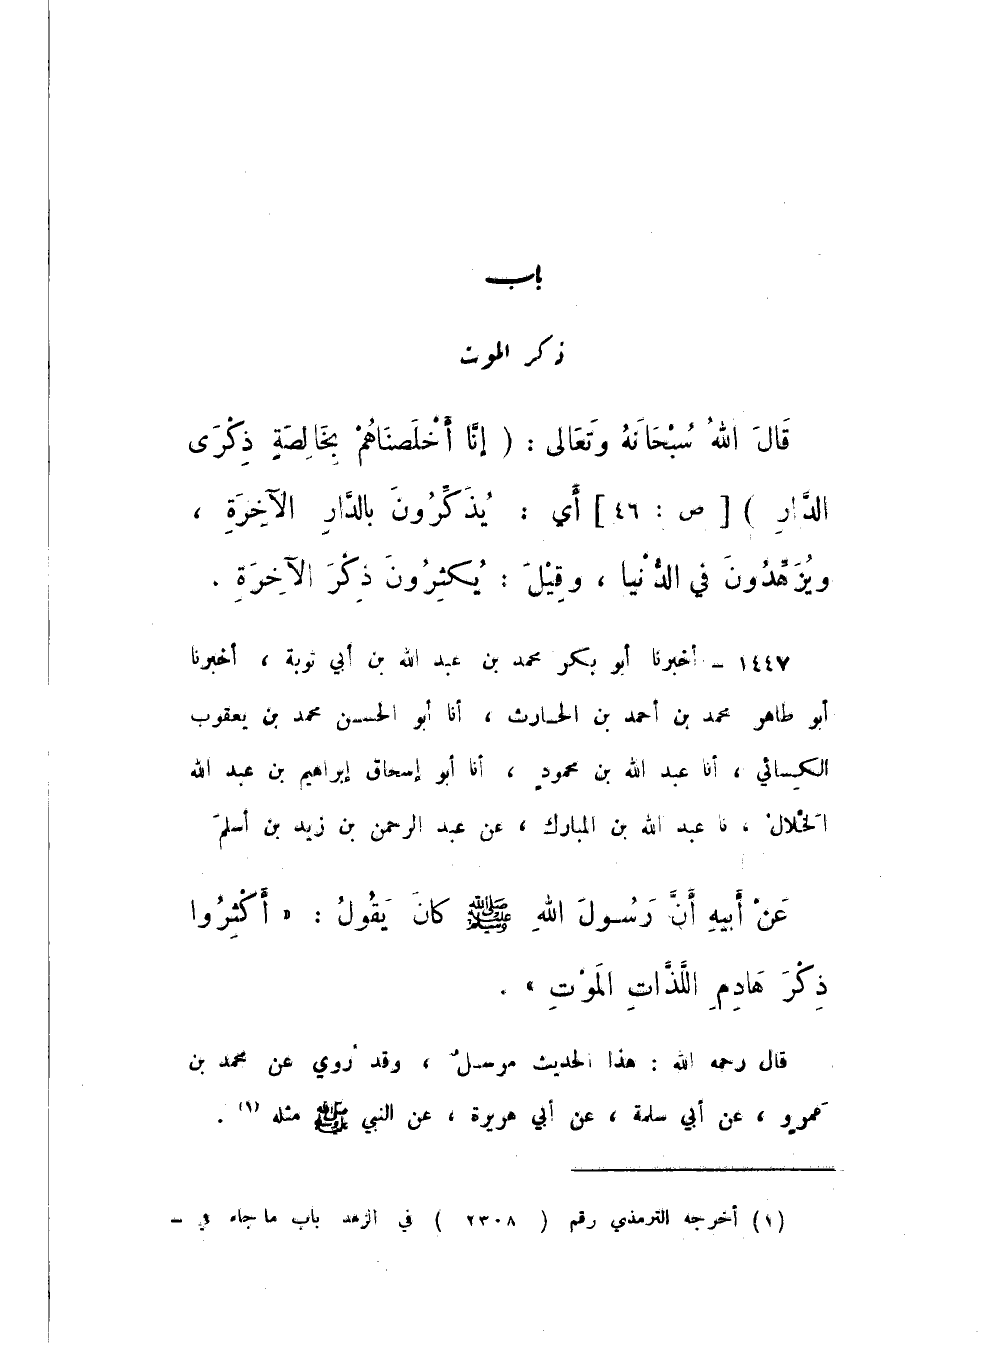 باب
ذكر الموت
قَالَ اللهُ سُبْحَانَهُ وَتَعَالى : ( إِنَّا أَخْلَصنَاهُمْ بِخَالِصَةٍ ذِكْرَى
الدَّارِ ) [ ص : ٤٦ ] أَي : يُذَكِّرُونَ بالدَّارِ الآخِرَةِ ،
ويُزَهِّدُونَ في الدُّنْيا ، وقِيْلَ : يُكثِرُونَ ذِكْرَ الآخِرَةِ .
١٤٤٧ – أخبرنا أبو بكر محمد بن عبد الله بن أبي توبة ، أخبرنا
أبو طاهر محمد بن أحمد بن الحارث ، أنا أبو الحسن محمد بن يعقوب
الكِسائي ، أنا عبد الله بن محمودٍ ، أنا أبو إسحاق إبراهيم بن عبد الله
الخَلال ، نا عبد الله بن المبارك ، عن عبد الرحمن بن زيد بن أسلمَ
عَنْ أَبيهِ أَنَّ رَسُولَ اللهِ ﷺ كانَ يَقُولُ : « أَكْثِرُوا
ذِكْرَ هَادِمِ اللَّذَّاتِ المَوْتِ » .
قال رحمه الله : هذا الحديث مرسلٌ ، وقد رُوي عن محمد بن
عَمروٍ ، عن أبي سلمة ، عن أبي هريرة ، عن النبي ﷺ مثله (١) .
(١) أخرجه الترمذي رقم ( ٢٣٠٨ ) في الزهد باب ما جاء في –